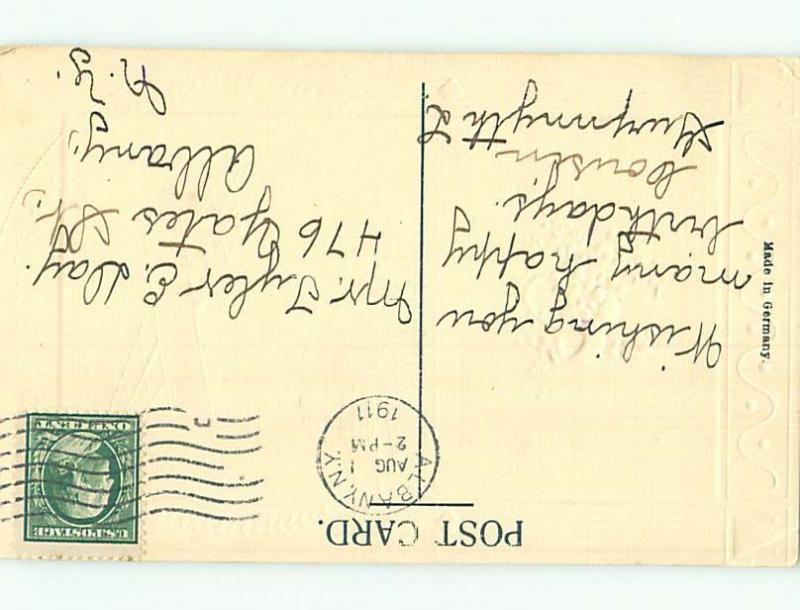 POST CARD.
ALBANY, N.Y.
AUG 1
2-PM
1911
U.S. POSTAGE
ONE CENT
Wishing you
many happy
birthdays.
Cousin
Gwynnyth L
Mr. Tyler E. Day.
476 Yates St.,
Albany,
N.Y.
Made in Germany.